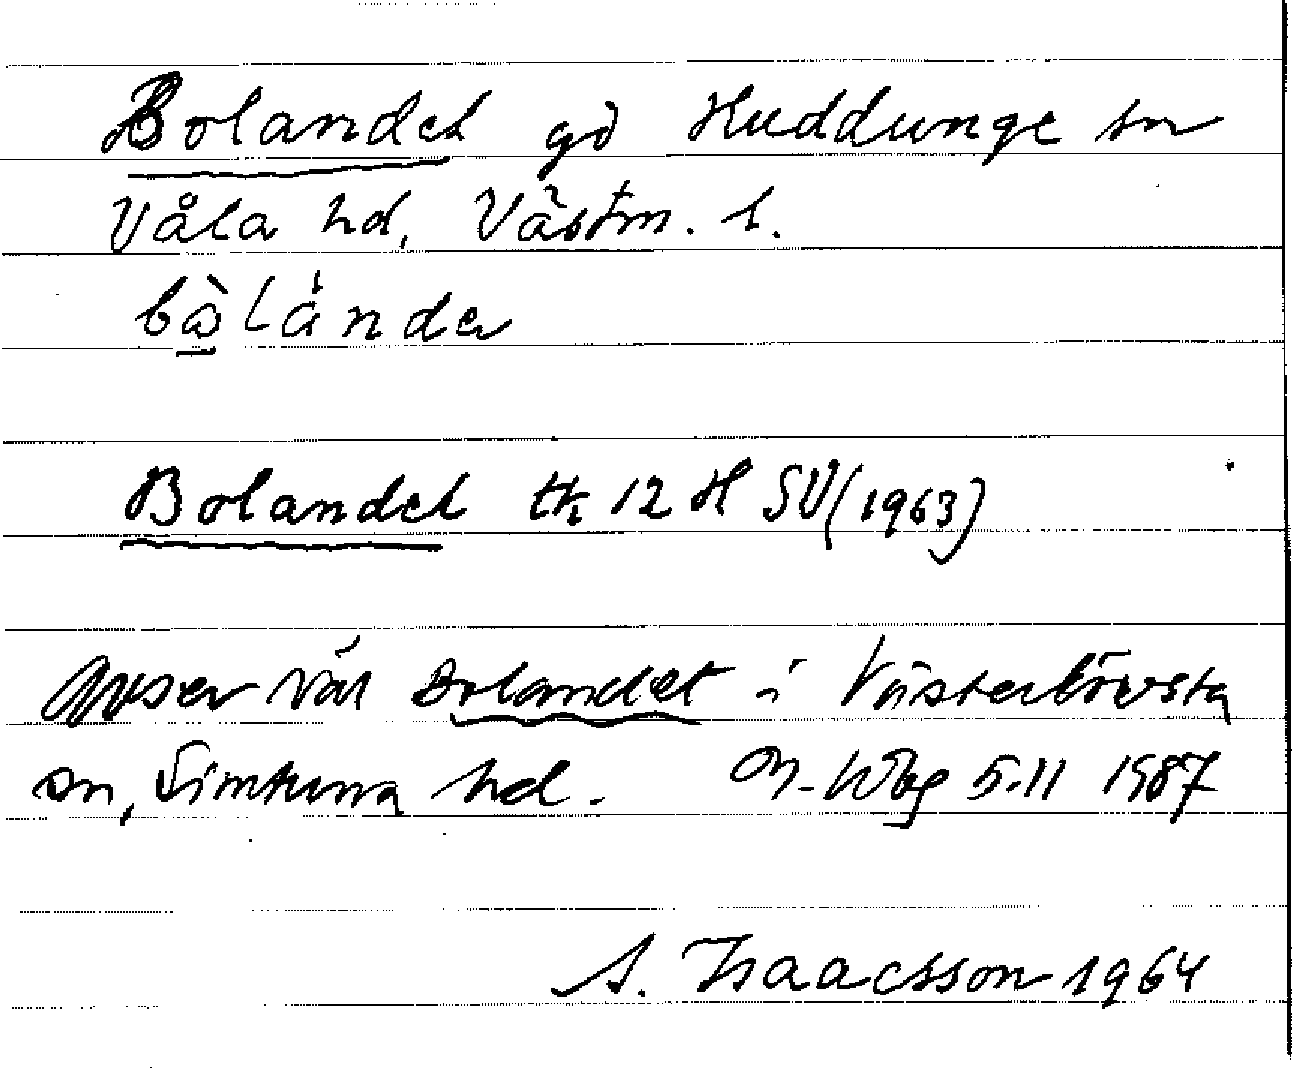 Bolandet gd Huddunge sn
Våla hd, Västm. l.
Bolandet tk 12 H SV (1963)
Avser väl Bolandet i Västerlövsta
sn, Simtuna hd. 5.11 1987
S. Isaacsson 1964